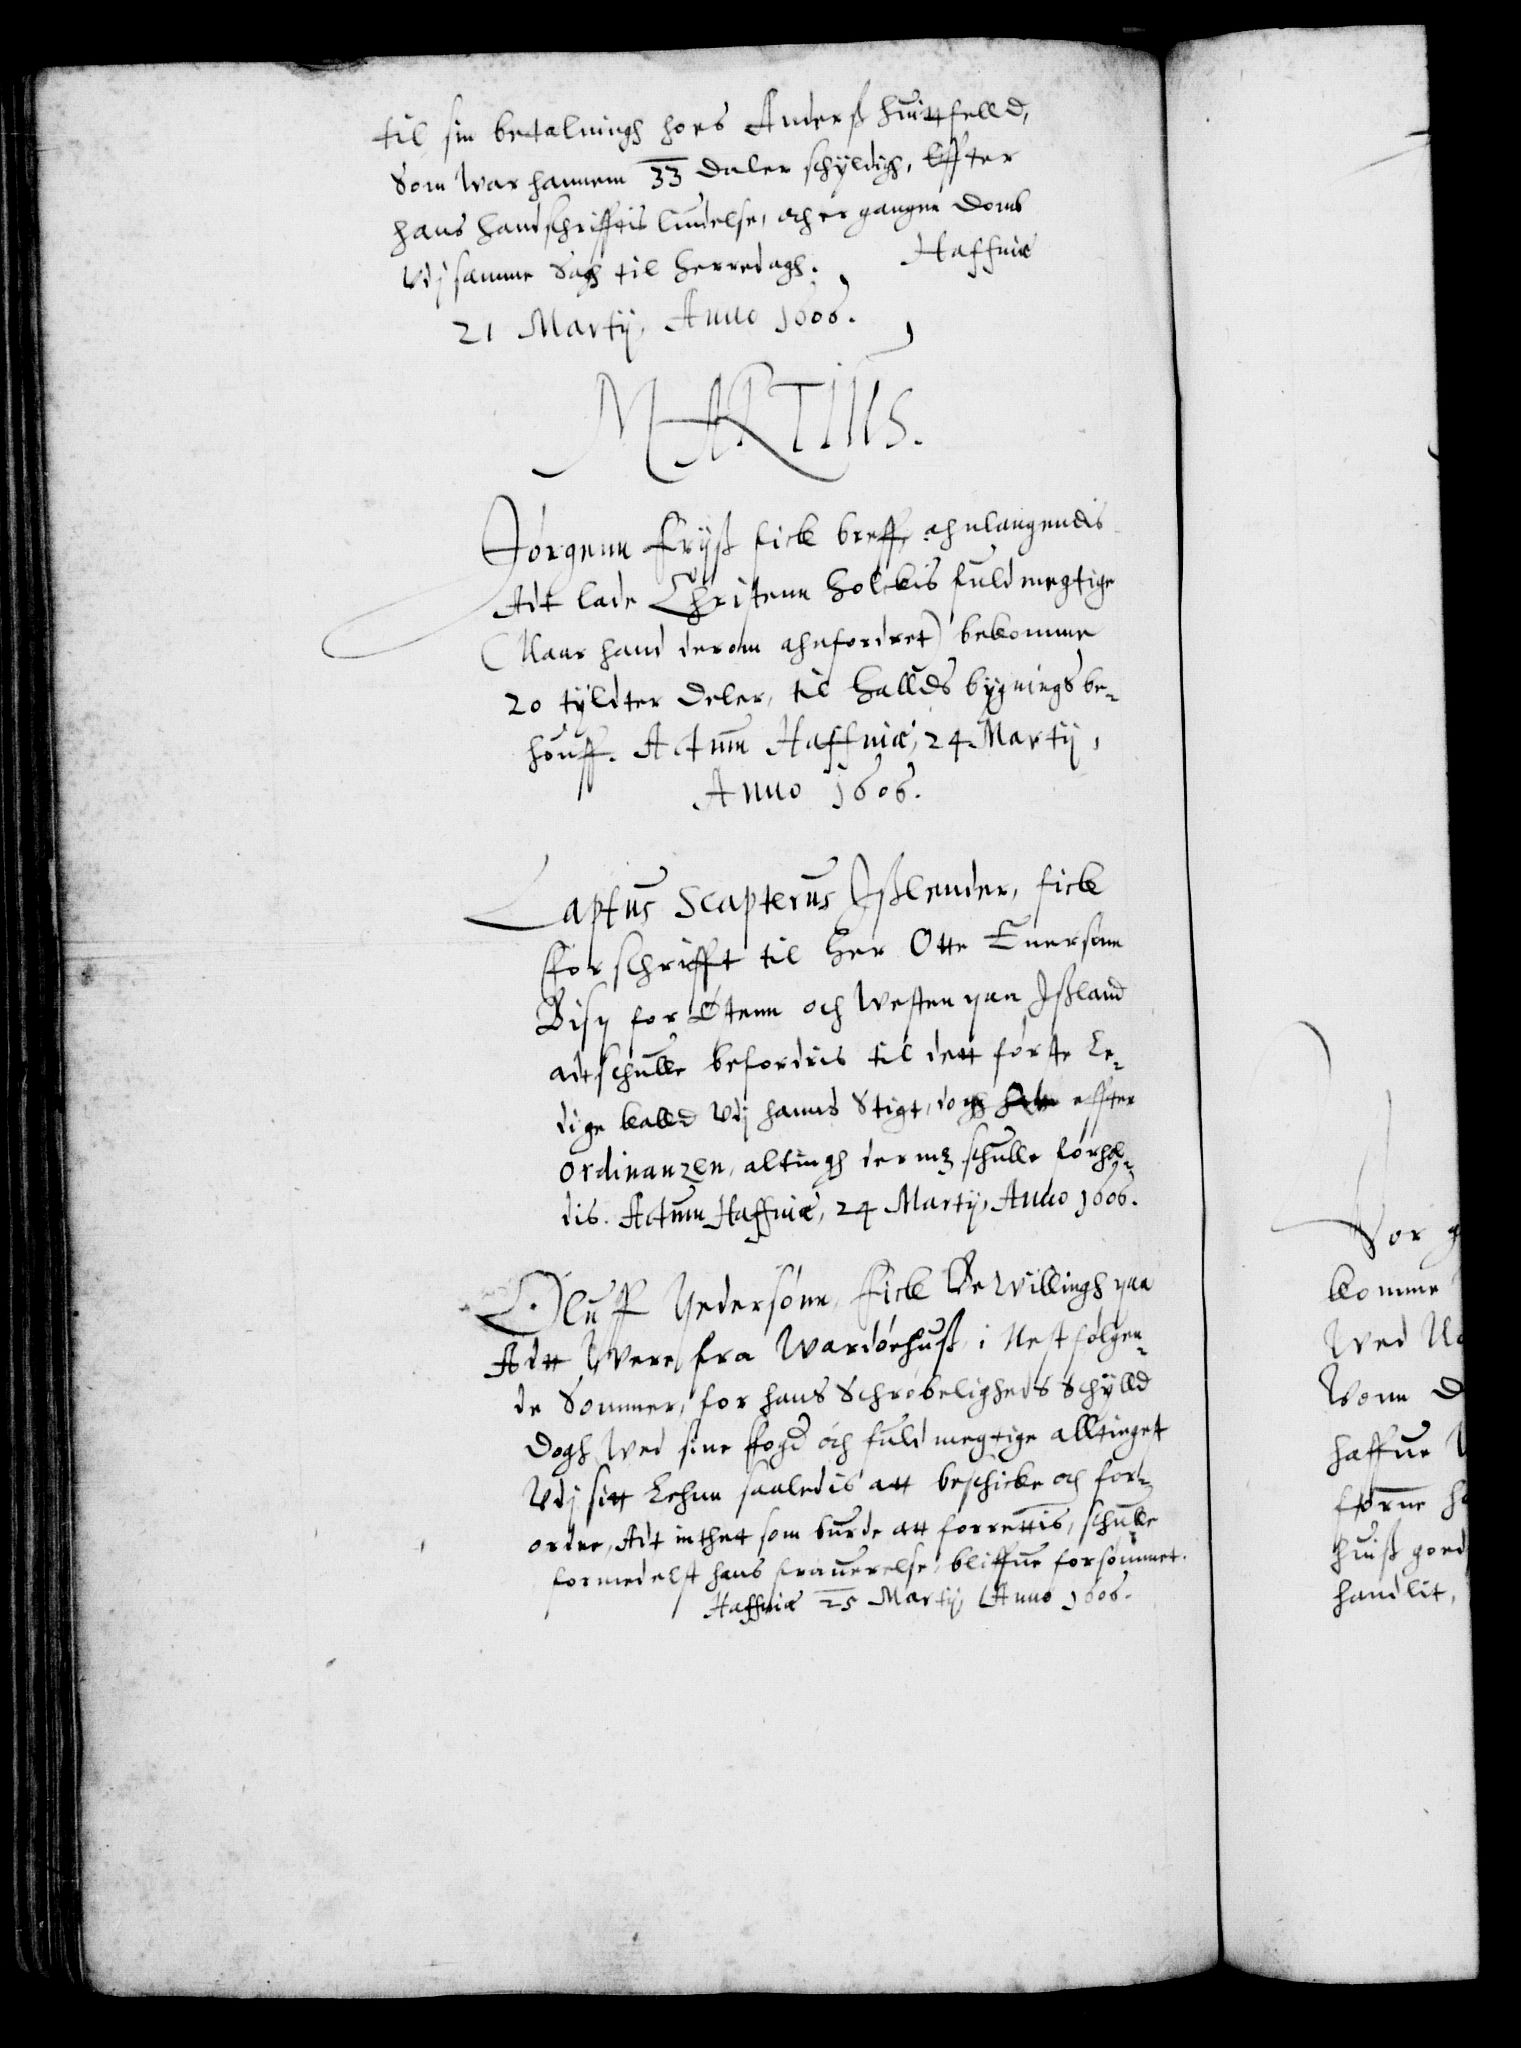 til sin betalningh hoes Anderß huittfelld,
Som War hannem 33 daler schyldigh, Effter
hans handschrifftis liudelse, och er gangne domb
Udj samme Sagh til herredagh. Haffniæ
21 Martij, Anno 1606.
MARTIUS.
Jørgenn Fryß fick breff, ahnlangendis
Adt lade Christenn Holckis fuldmegtige
(Naar hand derom ahnfordret) bekomme
20 tyldter deler, til Hallds bygnings be-
houff. Actum Haffniæ, 24. Martij,
Anno 1606.
Laptus Scapterus Jßlender, fick
fforschrifft til Her Otte Enersøn
Bisp for Østenn och Westen paa Jßland
adt schulle befordris til dett første Le-
dige kalld Udj hanns Stigt, dogh effter
Ordinanzen, altingh der mz schulle forhol-
dis. Actum Haffniæ, 24 Martij, Anno 1606.
Oluff Pedersønn, fick Bewillingh paa
Adtt Were fra Wardøehuß, i Nestfølgen-
de Sommer, for hans Schrøbeligheds Schylld
Dogh Wed sine ffogd och fuldmegtige alltinget
Udj sitt Lehnn saaledis att beschicke och for-
ordne, Adt inthet som burde att forrettis, schulle
formedelst hans frauerelse, bliffue forsømmet.
Haffniæ 25 Martij, Anno 1606.
For
komme
Wed
Wonn
haffue
fforne
huiß goed
handlit,